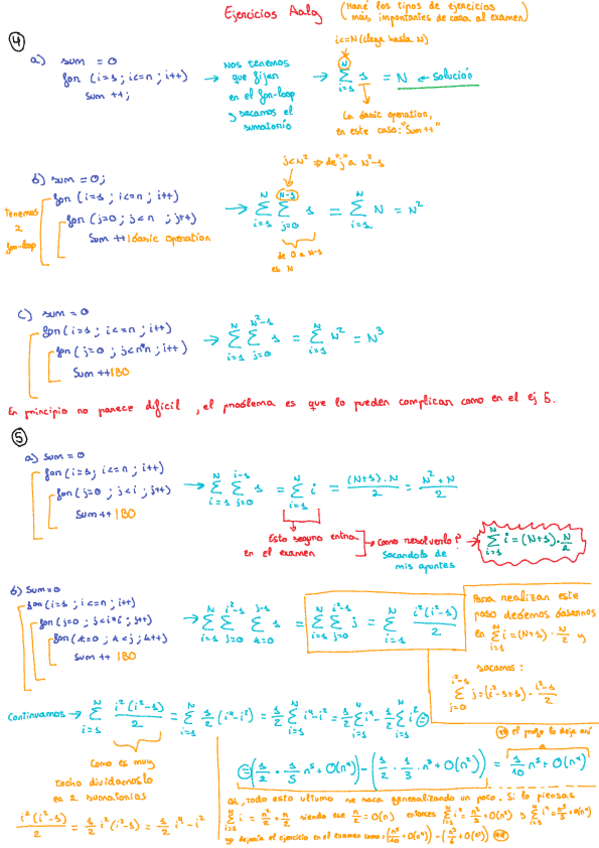 Ejercicios Aalg (Haré los tipos de ejercicios más importantes de cara al examen)
4
a) sum = 0
for (i=1; i<=n; i++)
sum ++;
→ Nos tenemos que fijar en el for-loop y sacamos el sumatorio
i<=N (llega hasta N)
→ ∑_{i=1}^{N} 1 = N ← solución
La basic operation, en este caso: "Sum++"
b) sum = 0;
for (i=1; i<=n; i++)
for (j=0; j<n; j++)
Sum ++ | basic operation
Tenemos 2 for-loop
j<N² ⇒ de "j" a N²-1
→ ∑_{i=1}^{N} ∑_{j=0}^{N-1} 1 = ∑_{i=1}^{N} N = N²
de 0 a N-1 es N
c) sum = 0
for (i=1; i<=n; i++)
for (j=0; j<n*n; i++)
Sum ++ | BO
→ ∑_{i=1}^{N} ∑_{j=0}^{N²-1} 1 = ∑_{i=1}^{N} N² = N³
En principio no parece dificil, el problema es que lo pueden complicar como en el ej 5.
5
a) sum = 0
for (i=1; i<=n; i++)
for (j=0; j<i; j++)
Sum ++ | BO
→ ∑_{i=1}^{N} ∑_{j=0}^{i-1} 1 = ∑_{i=1}^{N} i = (N+1).N / 2 = N²+N / 2
Esto seguro entra en el examen
→ Como resolverlo? sacandolo de mis apuntes
→ ∑_{i=1}^{N} i = (N+1). N/2
b) Sum = 0
for (i=1; i<=n; i++)
for (j=0; j<i*i; j++)
for (k=0; k<j; k++)
Sum ++ | BO
→ ∑_{i=1}^{N} ∑_{j=0}^{i²-1} ∑_{k=0}^{j-1} 1 = ∑_{i=1}^{N} ∑_{j=0}^{i²-1} j = ∑_{i=1}^{N} i²(i²-1) / 2
Para realizar este paso debemos basarnos en ∑_{i=1}^{N} i = (N+1). N/2 y
sacamos:
∑_{j=0}^{i²-1} j = (i²-1+1) . i²-1 / 2
Continuamos → ∑_{i=1}^{N} i²(i²-1) / 2 = ∑_{i=1}^{N} 1/2 (i⁴-i²) = 1/2 ∑_{i=1}^{N} i⁴-i² = 1/2 ∑_{i=1}^{N} i⁴ - 1/2 ∑_{i=1}^{N} i² =
Como es muy tocho dividamoslo en 2 sumatorios
i²(i²-1) / 2 = 1/2 i²(i²-1) = 1/2 i⁴-i²
el profe lo deja así
= (1/2 . 1/5 n⁵ + O(n⁴)) - (1/2 . 1/3 . n³ + O(n²)) = 1/10 n⁵ + O(n⁴)
todo esto ultimo se saca generalizando un poco. Si lo piensas
∑_{i=1}^{N} i = n²/2 + n/2 siendo ese n/2 = O(n) entonces ∑_{i=1}^{N} i² = n³/3 + O(n²) y ∑_{i=1}^{N} i⁴ = n⁵/5 + O(n⁴)
yo dejaría el ejercicio en el examen como = (n⁵/10 + O(n⁴)) - (n³/6 + O(n²))